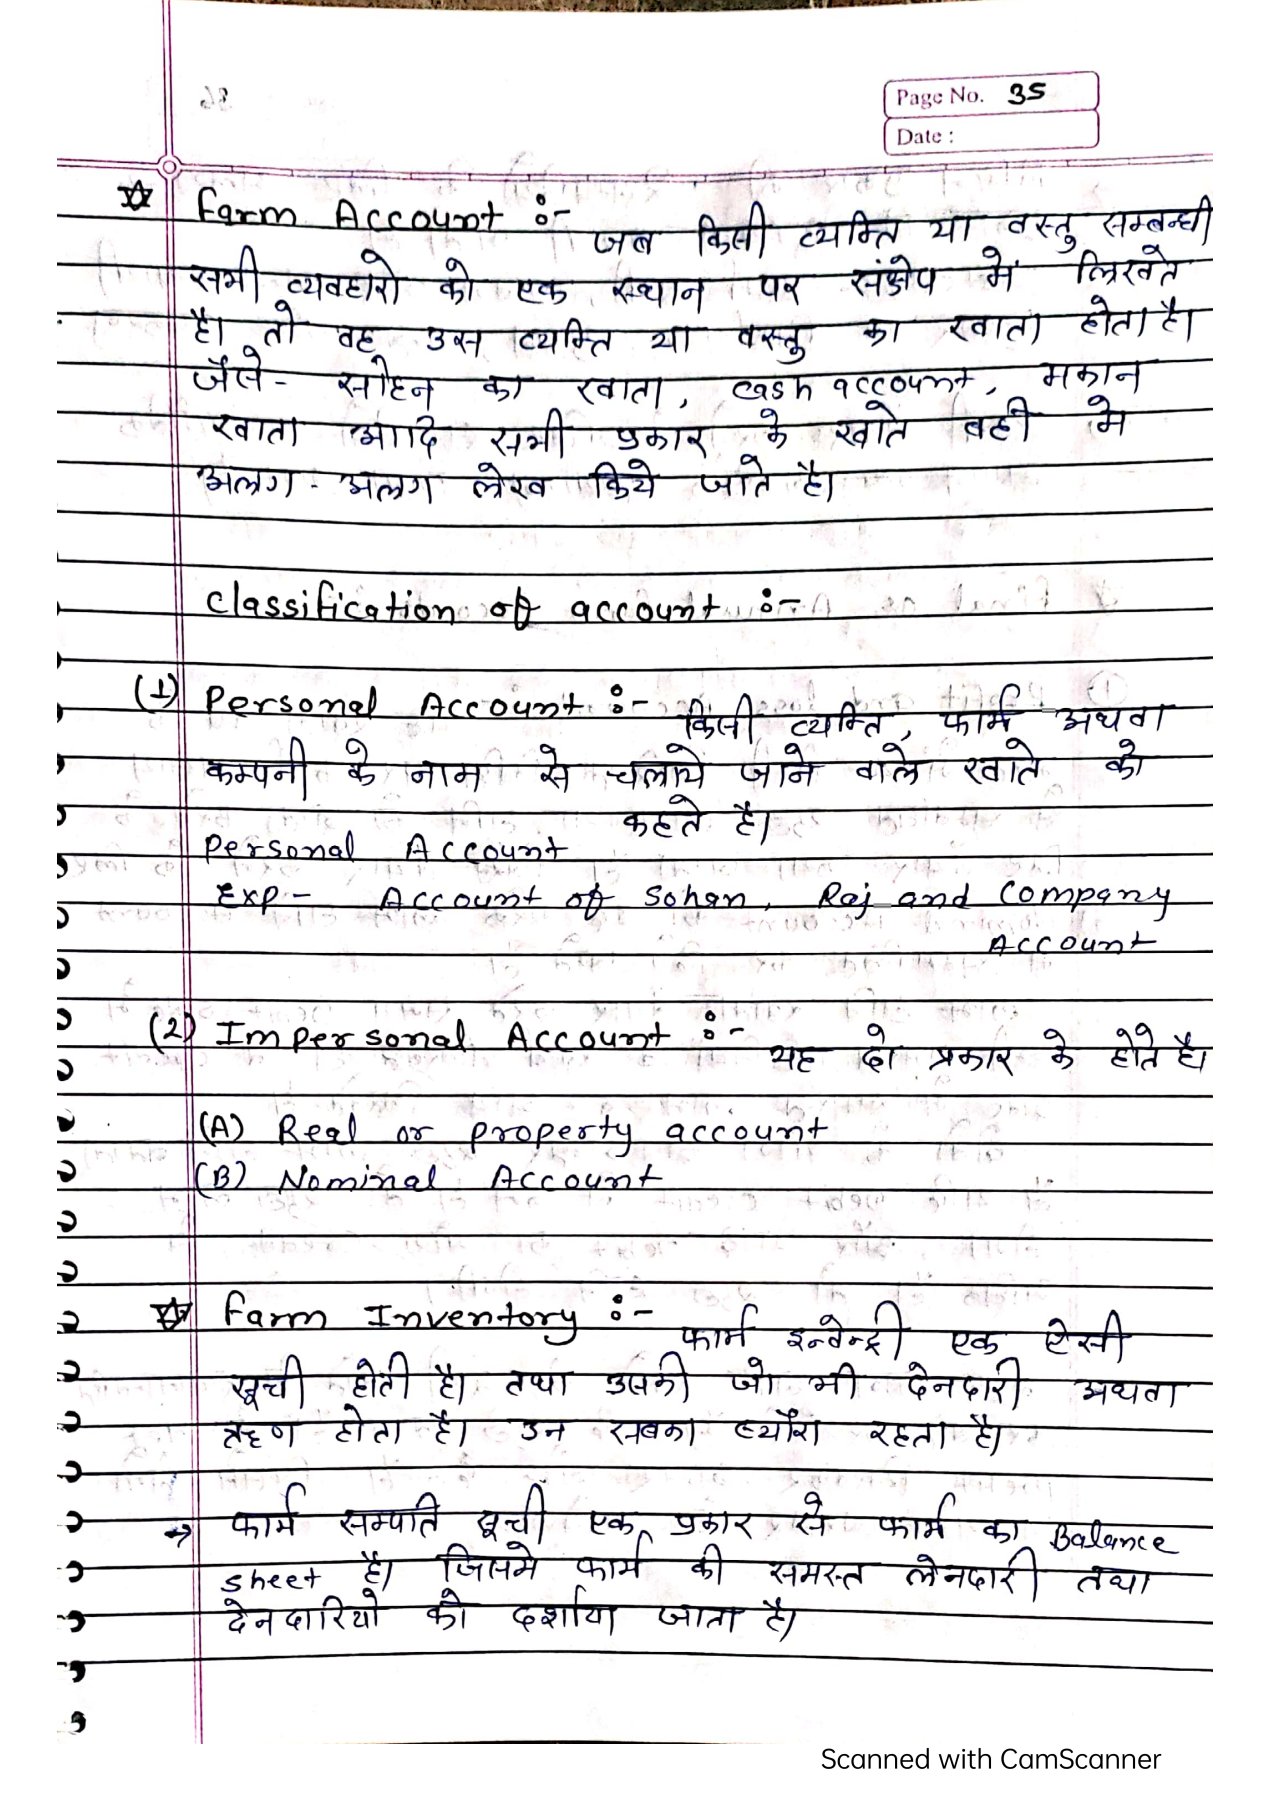 Page No. 35
Date :
Farm Account :-
जब किसी व्यक्ति या वस्तु सम्बन्धी
सभी व्यवहारो को एक स्थान पर संक्षेप में लिखते
है। तो वह उस व्यक्ति या वस्तु का खाता होता है।
जैसे- सोहन का खाता, cash account, मकान
खाता आदि सभी प्रकार के खाते बही मे
अलग-अलग लेख किये जाते है।
classification of account :-
(1) Personal Account :-
किसी व्यक्ति, फार्म अथवा
कम्पनी के नाम से चलाये जाने वाले खाते को
कहते है।
Personal Account
Exp- Account of Sohan, Raj and Company
Account
(2) Impersonal Account :-
यह दो प्रकार के होते है।
(A) Real or property account
(B) Nominal Account
Farm Inventory :-
फार्म इन्वेन्ट्री एक ऐसी
सूची होती है। तथा उसकी जो भी देनदारी अथवा
ऋण होता है। उन सबका ब्यौरा रहता है।
→ फार्म सम्पति सूची एक प्रकार से फार्म का Balance
sheet है। जिसमे फार्म की समस्त लेनदारी तथा
देनदारियो को दर्शाया जाता है।
Scanned with CamScanner